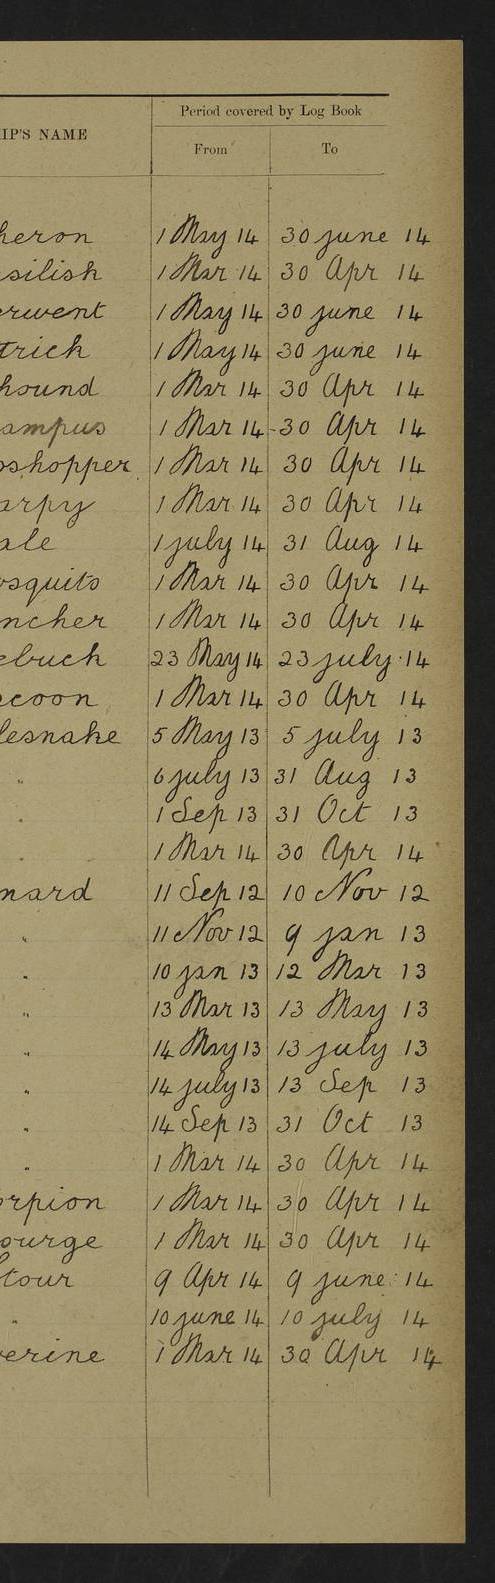 Period covered by Log Book
IP'S NAME From To
heron 1 May 14 30 june 14
silish 1 Mar 14 30 Apr 14
erwent 1 May 14 30 june 14
trick 1 May 14 30 june 14
hound 1 Mar 14 30 Apr 14
ampus 1 Mar 14 30 Apr 14
sshopper 1 Mar 14 30 Apr 14
arpy 1 Mar 14 30 Apr 14
ale 1 july 14 31 Aug 14
osquito 1 Mar 14 30 Apr 14
ncher 1 Mar 14 30 Apr 14
ebuck 23 May 14 23 july 14
ccoon 1 Mar 14 30 Apr 14
lesnake 5 May 13 5 july 13
" 6 july 13 31 Aug 13
" 1 Sep 13 31 Oct 13
" 1 Mar 14 30 Apr 14
nard 11 Sep 12 10 Nov 12
" 11 Nov 12 9 jan 13
" 10 jan 13 12 Mar 13
" 13 Mar 13 13 May 13
" 14 May 13 13 july 13
" 14 july 13 13 Sep 13
" 14 Sep 13 31 Oct 13
" 1 Mar 14 30 Apr 14
orpion 1 Mar 14 30 Apr 14
ourge 1 Mar 14 30 Apr 14
tour 9 Apr 14 9 june 14
" 10 june 14 10 july 14
verine 1 Mar 14 30 Apr 14